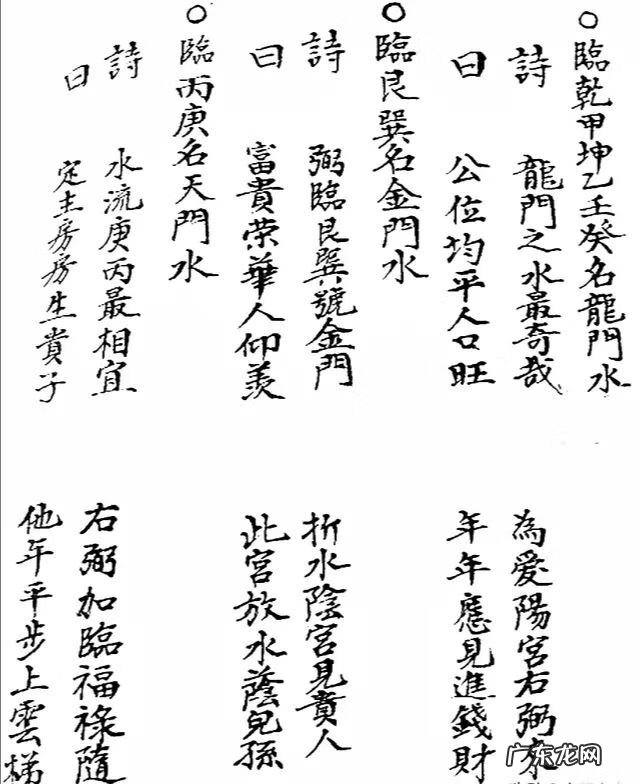 ○臨乾甲坤乙壬癸名龍門水
詩曰
龍門之水最奇哉
為愛陽宮右弼處
公位均平人口旺
年年應見進錢財
○臨艮巽名金門水
詩曰
弼臨艮巽號金門
折水陰宮見貴人
富貴荣華人仰羨
此宮放水蔭兒孫
○臨丙庚名天門水
詩曰
水流庚丙最相宜
右弼加臨福祿隨
定主房房生貴子
他年平步上雲梯
广东龙网